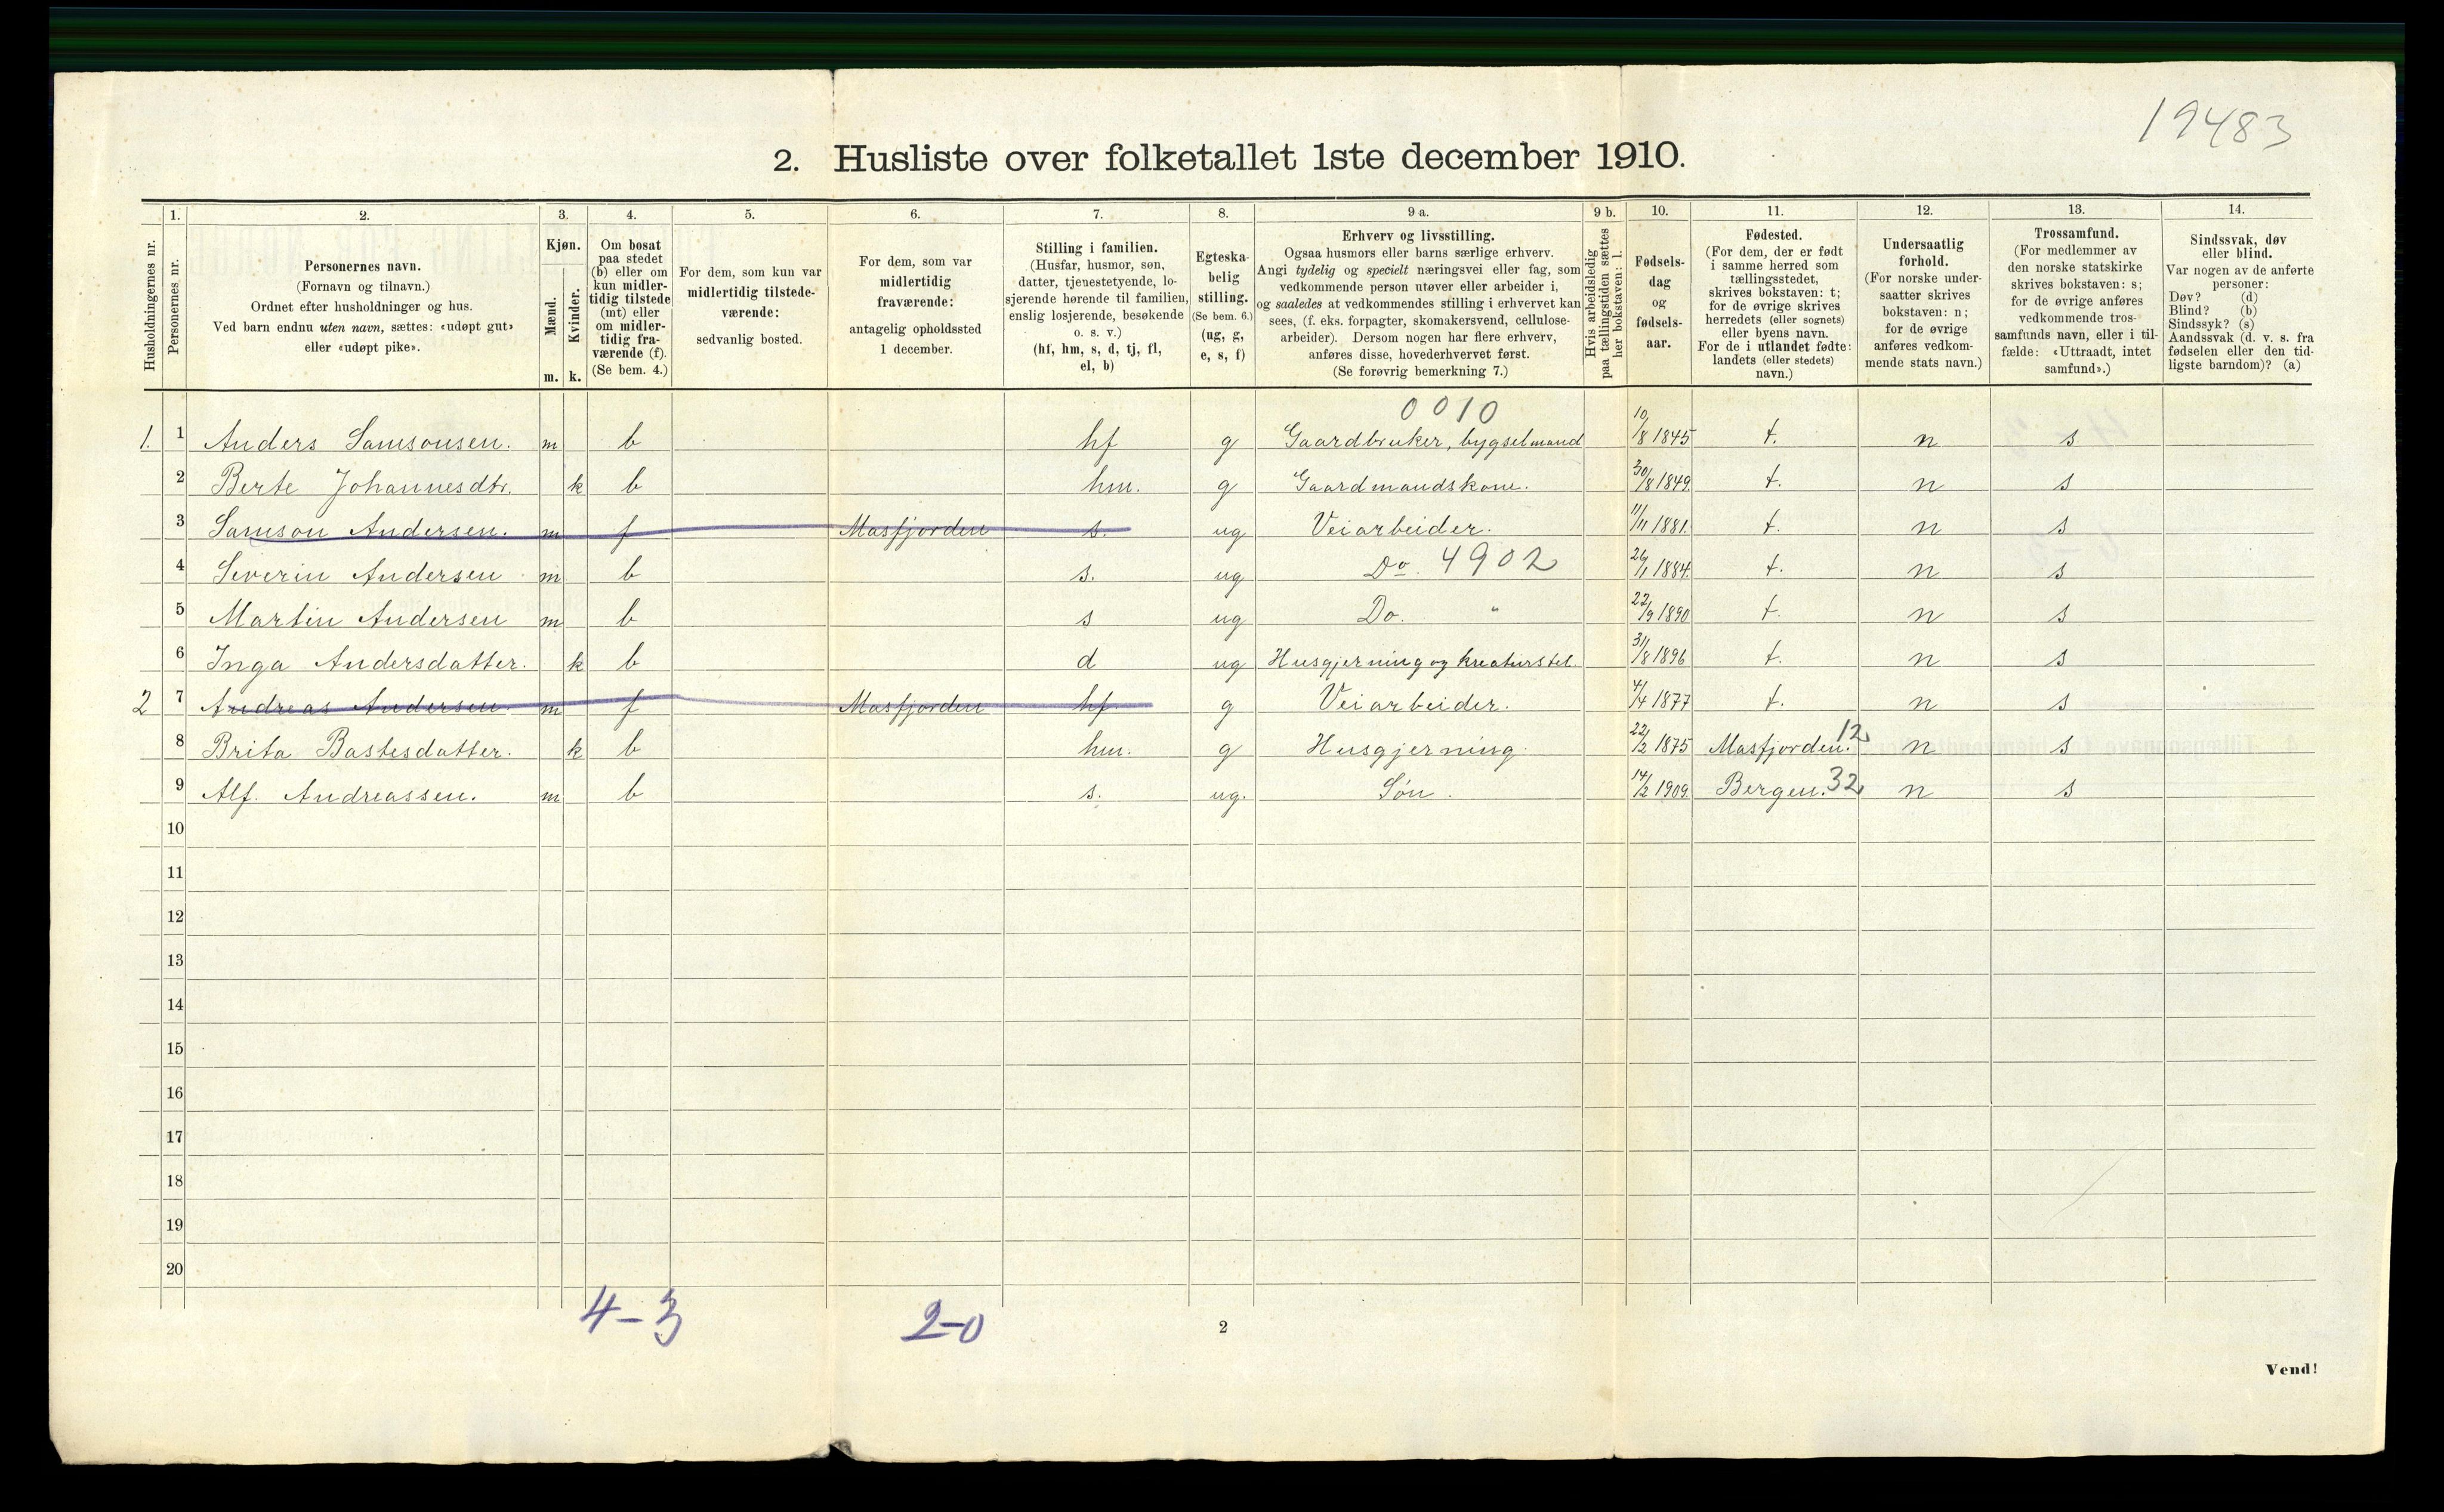 19483
2. Husliste over folketallet 1ste december 1910.
1. 2. 3. 4. 5. 6. 7. 8. 9 a. 9 b. 10. 11. 12. 13. 14.
Husholdningernes nr.
Personernes nr.
Personernes navn.
(Fornavn og tilnavn.)
Ordnet efter husholdninger og hus.
Ved barn endnu uten navn, sættes: «udøpt gut»
eller «udøpt pike».
Kjøn.
Mænd.
Kvinder.
m. k.
Om bosat
paa stedet
(b) eller om
kun midler-
tidig tilstede
(mt) eller
om midler-
tidig fra-
værende (f).
(Se bem. 4.)
For dem, som kun var
midlertidig tilstede-
værende:
sedvanlig bosted.
For dem, som var
midlertidig
fraværende:
antagelig opholdssted
1 december.
Stilling i familien.
(Husfar, husmor, søn,
datter, tjenestetyende, lo-
sjerende hørende til familien,
enslig losjerende, besøkende
o. s. v.)
(hf, hm, s, d, tj, fl,
el, b)
Egteska-
belig
stilling.
(Se bem. 6.)
(ug, g,
e, s, f)
Erhverv og livsstilling.
Ogsaa husmors eller barns særlige erhverv.
Angi tydelig og specielt næringsvei eller fag, som
vedkommende person utøver eller arbeider i,
og saaledes at vedkommendes stilling i erhvervet kan
sees, (f. eks. forpagter, skomakersvend, cellulose-
arbeider). Dersom nogen har flere erhverv,
anføres disse, hovederhvervet først.
(Se forøvrig bemerkning 7.)
Hvis arbeidsledig
paa tællingstiden sættes
her bokstaven: l.
Fødsels-
dag
og
fødsels-
aar.
Fødested.
(For dem, der er født
i samme herred som
tællingsstedet,
skrives bokstaven: t;
for de øvrige skrives
herredets (eller sognets)
eller byens navn.
For de i utlandet fødte:
landets (eller stedets)
navn.)
Undersaatlig
forhold.
(For norske under-
saatter skrives
bokstaven: n;
for de øvrige
anføres vedkom-
mende stats navn.)
Trossamfund.
(For medlemmer av
den norske statskirke
skrives bokstaven: s;
for de øvrige anføres
vedkommende tros-
samfunds navn, eller i til-
fælde: «Uttraadt, intet
samfund».)
Sindssvak, døv
eller blind.
Var nogen av de anførte
personer:
Døv? (d)
Blind? (b)
Sindssyk? (s)
Aandssvak (d. v. s. fra
fødselen eller den tid-
ligste barndom)? (a)
0010
1. 1 Anders Samsonsen. m b hf g Gaardbruker, bygselmand 10/8 1845 t. n s
2 Berte Johannesdtr. k b hm. g Gaardmandskone. 30/8 1849. t. n s
3 Samson Andersen. m f Masfjorden s. ug Veiarbeider. 11/11 1881. t. n s
4 Severin Andersen m b s. ug Do. 4902 26/1 1884. t. n s
5 Martin Andersen m b s ug Do. " 22/9 1890 t. n s
6 Inga Andersdatter. k b d ug Husgjerning og kreaturstel. 31/8 1896 t. n s
2 7 Andreas Andersen. m f Masfjorden hf g Veiarbeider. 4/4 1877 t. n s
8 Brita Bastesdatter. k b hm. g Husgjerning. 22/2 1875 Masfjorden. 12 n s
9 Alf. Andreassen. m b s. ug. Søn. 14/2 1909. Bergen. 32 n s
10
11
12
13
14
15
16
17
18
19
20
4-3 2-0
2
Vend!